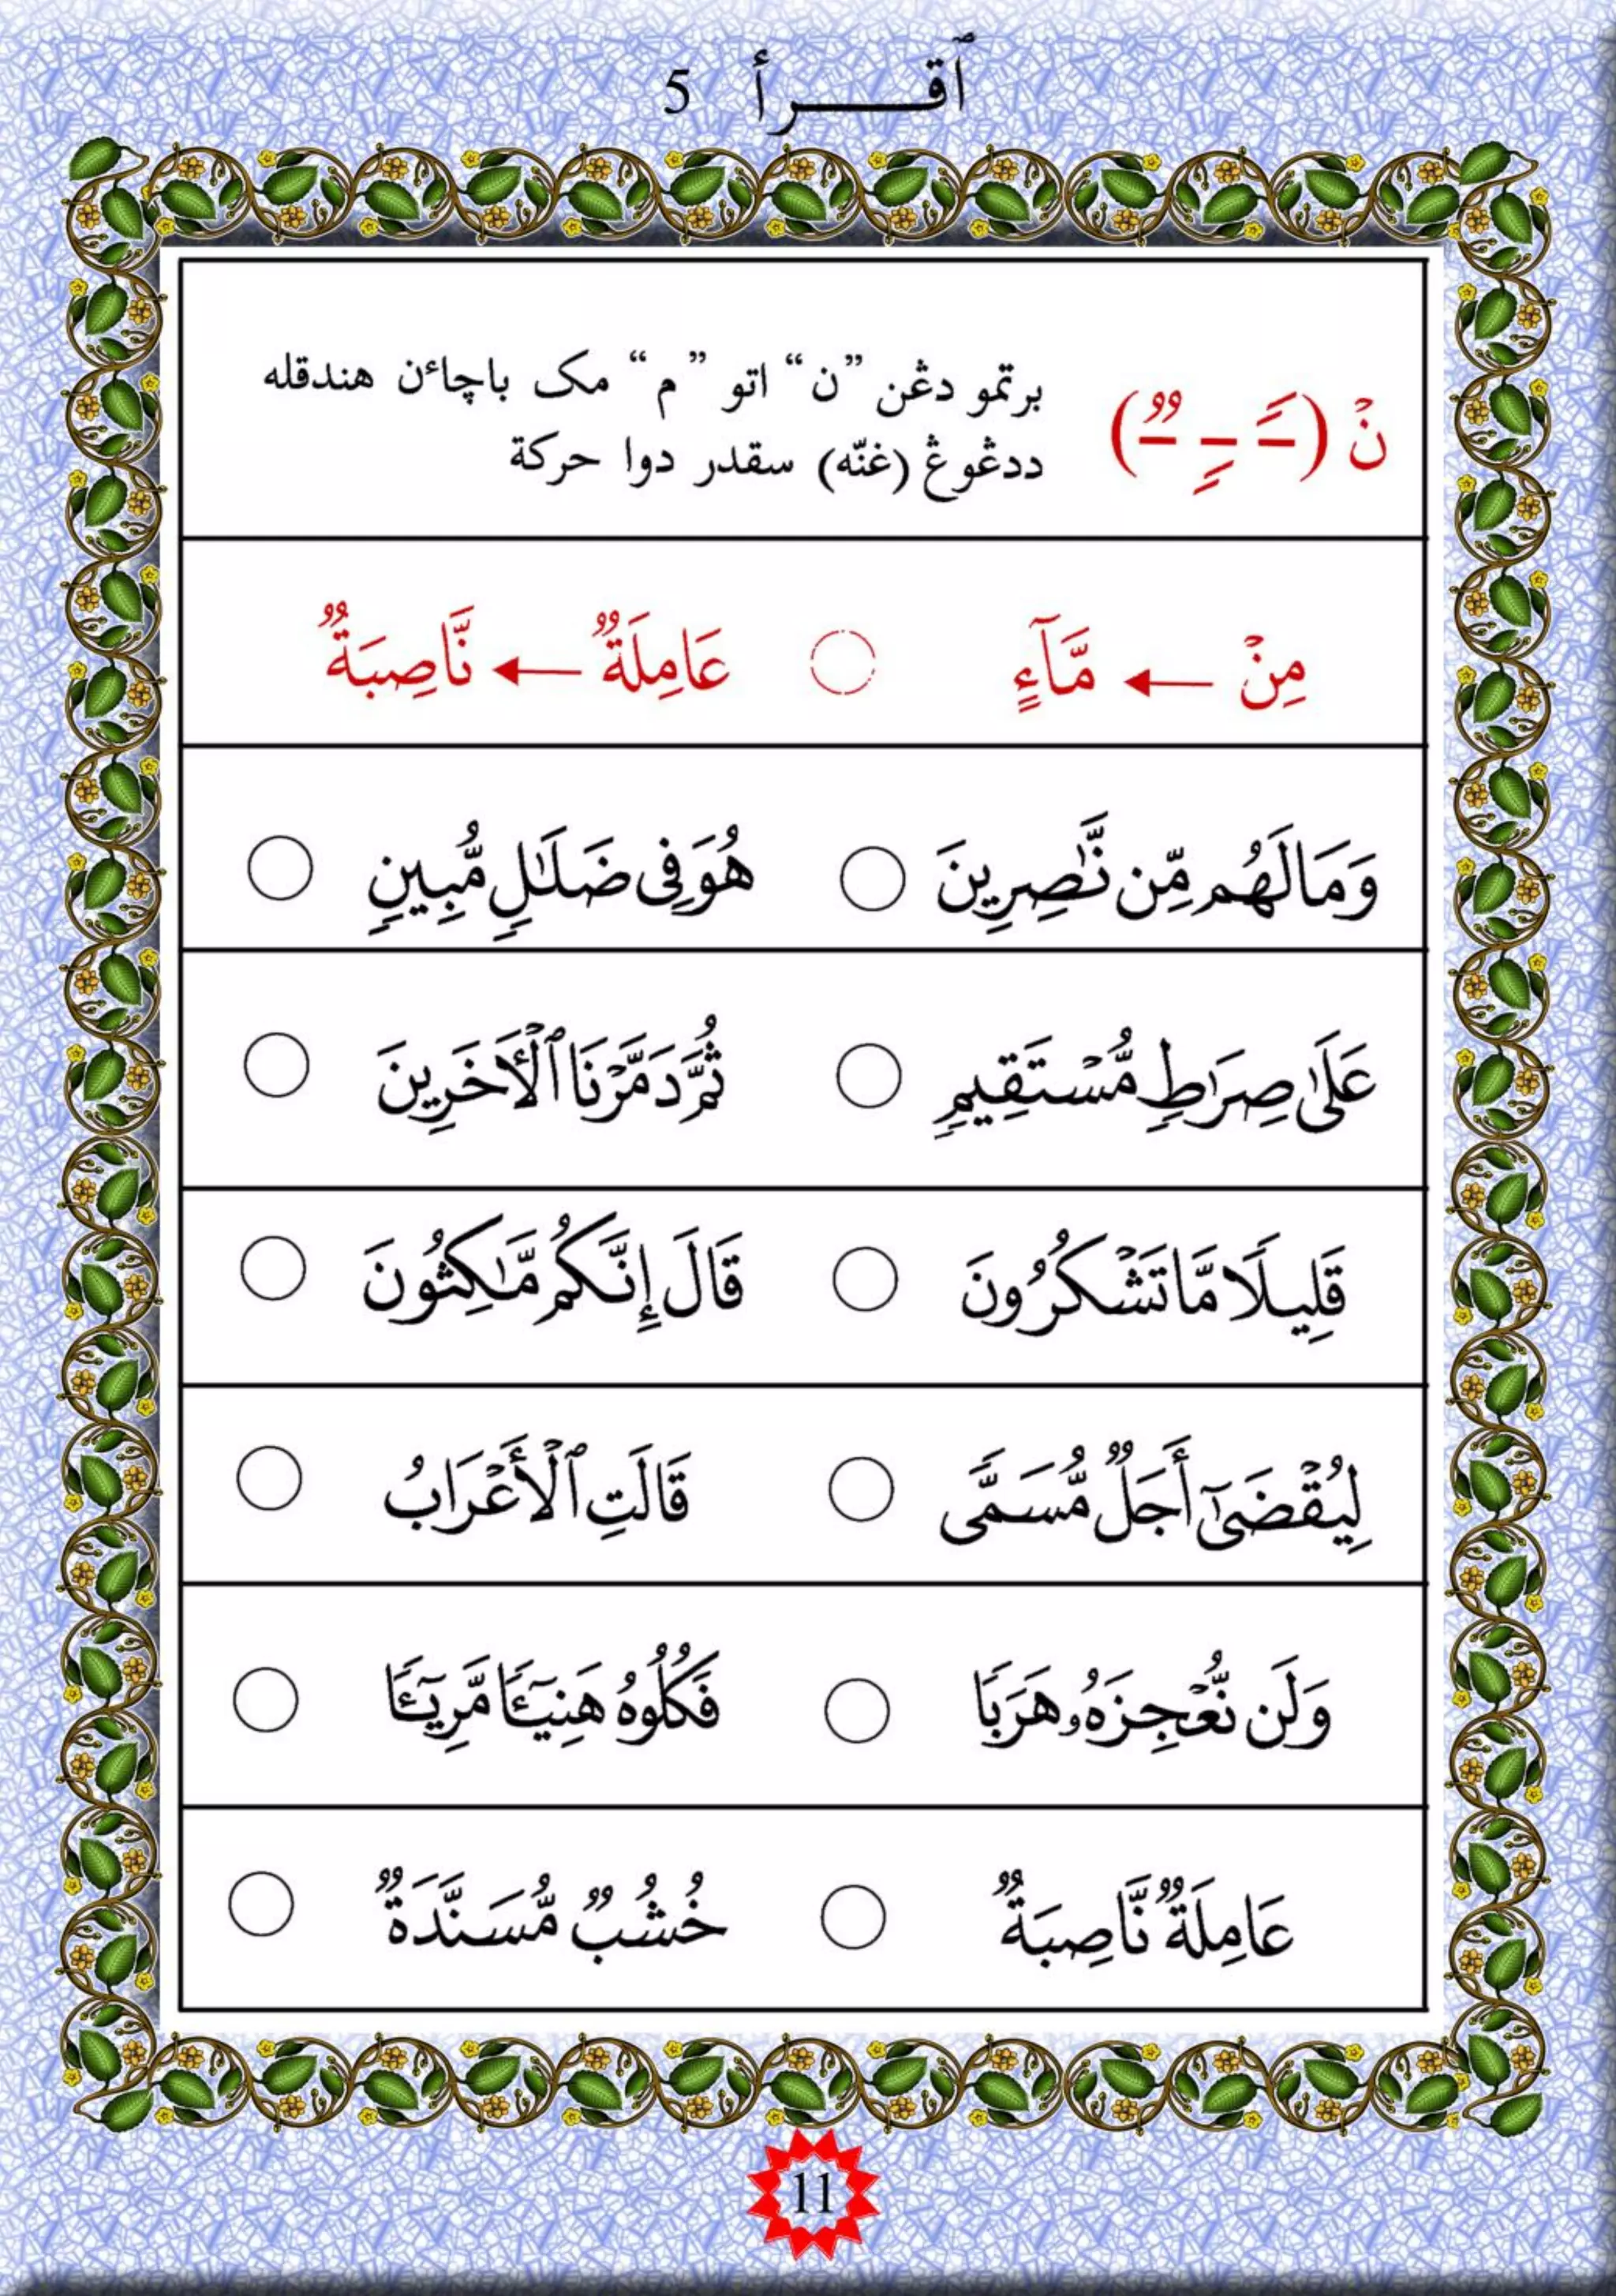 ٱقـــرأ 5
نۡ (ـًـ ـٍـ ـٌـ) برتمو دڠن ”ن“ اتو ”م“ مک باچاءن هندقله
ددڠوڠ (غنّه) سقدر دوا حركة
مِنۡ ← مَّآءٍ ○ عَامِلَةٌ ← نَّاصِبَةٌ
وَمَا لَهُم مِّن نَّٰصِرِينَ ○ هُوَ فِى ضَلَٰلٍ مُّبِينٍ ○
عَلَىٰ صِرَٰطٍ مُّسۡتَقِيمٍ ○ ثُمَّ دَمَّرۡنَا ٱلۡأَخَرِينَ ○
قَلِيلًا مَّا تَشۡكُرُونَ ○ قَالَ إِنَّكُم مَّٰكِثُونَ ○
لِيُقۡضَىٰٓ أَجَلٌ مُّسَمًّى ○ قَالَتِ ٱلۡأَعۡرَابُ ○
وَلَن نُّعۡجِزَهُۥ هَرَبًا ○ فَكُلُوهُ هَنِيٓـًٔا مَّرِيٓـًٔا ○
عَامِلَةٌ نَّاصِبَةٌ ○ خُشُبٌ مُّسَنَّدَةٌ ○
11